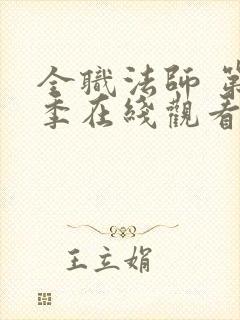 全職法師 第
季在綫觀看
王立娟